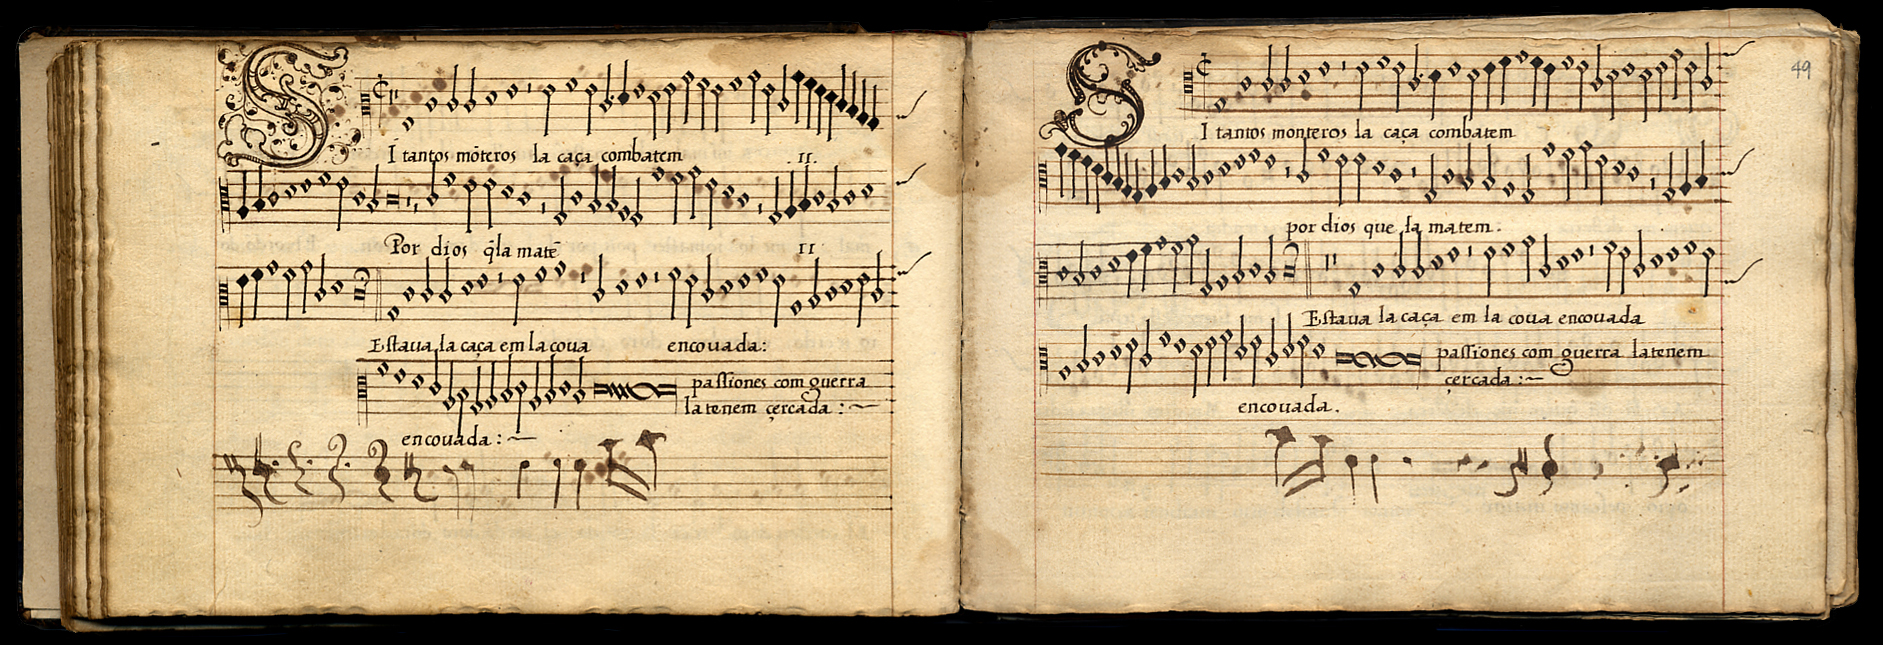 SI tantos mõteros la caça combatem .II.
Por dios q̃ la matẽ II
Estaua la caça em la coua encouada:
passiones com guerra
la tenem çercada :~
encouada :~
49
SI tantos monteros la caça combatem
por dios que la matem:
Estaua la caça em la coua encouada
passiones com guerra la tenem
çercada :~
encouada.